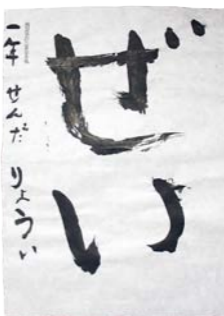 ぜい
一年 せんだ りょうい